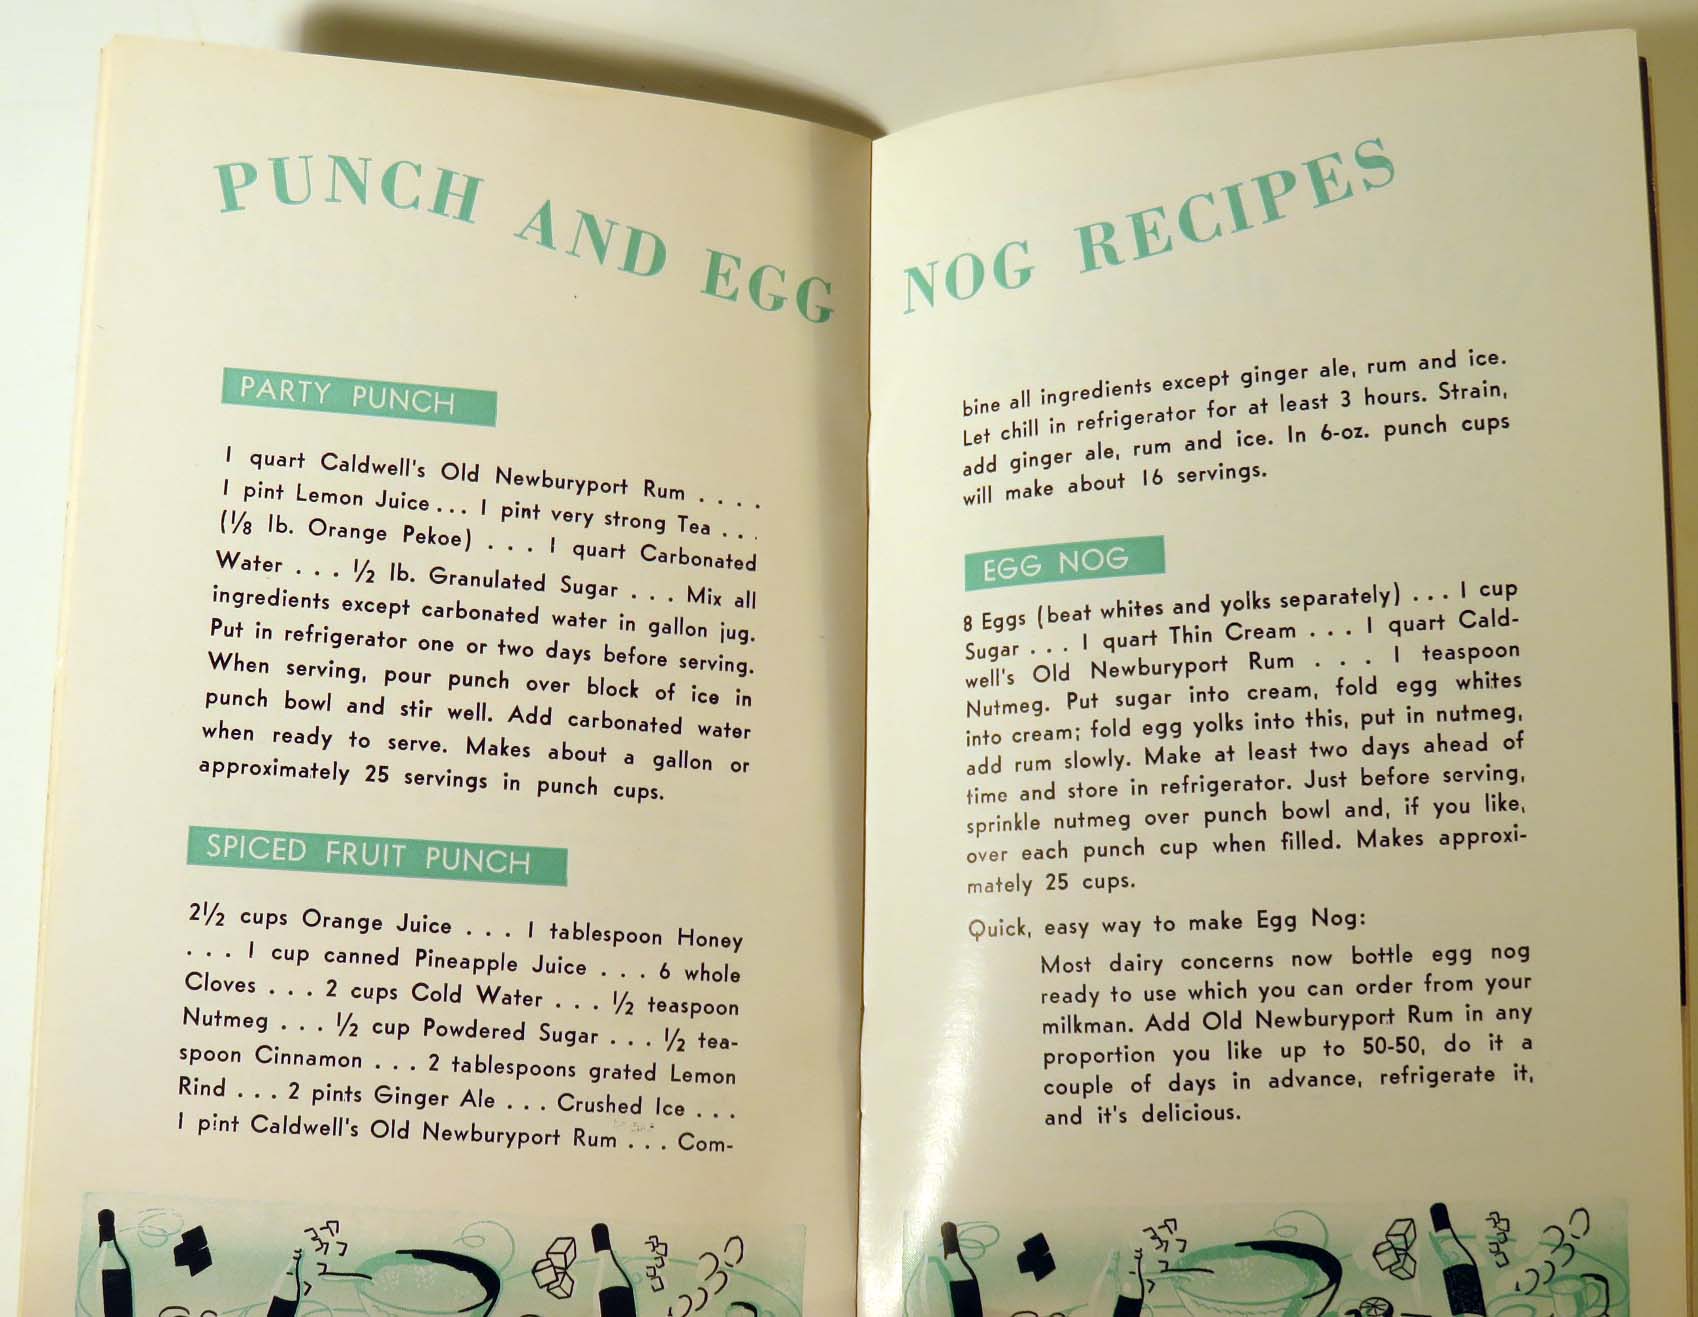 PUNCH AND EGG NOG RECIPES
PARTY PUNCH
1 quart Caldwell's Old Newburyport Rum . . . .
1 pint Lemon Juice . . . 1 pint very strong Tea . . .
(1/8 lb. Orange Pekoe) . . . 1 quart Carbonated
Water . . . 1/2 lb. Granulated Sugar . . . Mix all
ingredients except carbonated water in gallon jug.
Put in refrigerator one or two days before serving.
When serving, pour punch over block of ice in
punch bowl and stir well. Add carbonated water
when ready to serve. Makes about a gallon or
approximately 25 servings in punch cups.
SPICED FRUIT PUNCH
2 1/2 cups Orange Juice . . . 1 tablespoon Honey
. . . 1 cup canned Pineapple Juice . . . 6 whole
Cloves . . . 2 cups Cold Water . . . 1/2 teaspoon
Nutmeg . . . 1/2 cup Powdered Sugar . . . 1/2 tea-
spoon Cinnamon . . . 2 tablespoons grated Lemon
Rind . . . 2 pints Ginger Ale . . . Crushed Ice . . .
1 pint Caldwell's Old Newburyport Rum . . . Com-
bine all ingredients except ginger ale, rum and ice.
Let chill in refrigerator for at least 3 hours. Strain,
add ginger ale, rum and ice. In 6-oz. punch cups
will make about 16 servings.
EGG NOG
8 Eggs (beat whites and yolks separately) . . . 1 cup
Sugar . . . 1 quart Thin Cream . . . 1 quart Cald-
well's Old Newburyport Rum . . . 1 teaspoon
Nutmeg. Put sugar into cream, fold egg whites
into cream; fold egg yolks into this, put in nutmeg,
add rum slowly. Make at least two days ahead of
time and store in refrigerator. Just before serving,
sprinkle nutmeg over punch bowl and, if you like,
over each punch cup when filled. Makes approxi-
mately 25 cups.
Quick, easy way to make Egg Nog:
Most dairy concerns now bottle egg nog
ready to use which you can order from your
milkman. Add Old Newburyport Rum in any
proportion you like up to 50-50, do it a
couple of days in advance, refrigerate it,
and it's delicious.